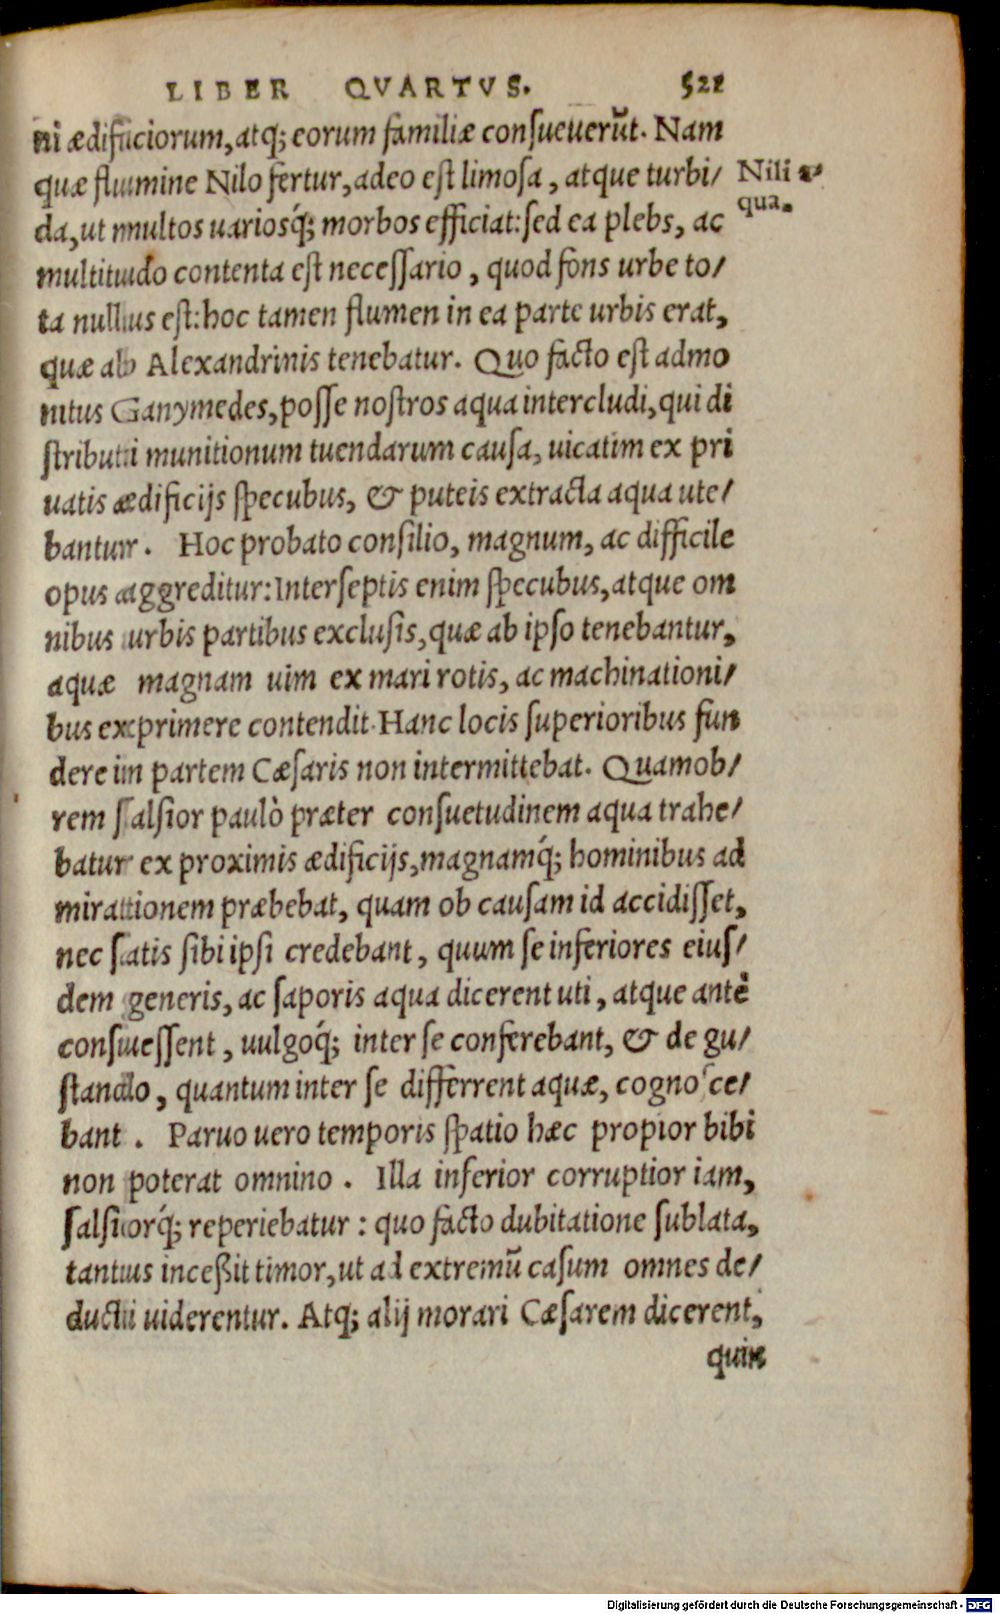 LIBER QVARTVS. 521
ni ædificiorum, atq; eorum familiæ consueuerũt. Nam
quæ flumine Nilo fertur, adeo est limosa, atque turbi/
Nili a/
da, ut multos uariosq́; morbos efficiat: sed ea plebs, ac
qua.
multitudo contenta est necessario, quod fons urbe to/
ta nullus est: hoc tamen flumen in ea parte urbis erat,
quæ ab Alexandrinis tenebatur. Quo facto est admo
nitus Ganymedes, posse nostros aqua intercludi, qui di
stributi munitionum tuendarum causa, uicatim ex pri
uatis ædificijs specubus, & puteis extracta aqua ute/
bantur. Hoc probato consilio, magnum, ac difficile
opus aggreditur: Interseptis enim specubus, atque om
nibus urbis partibus exclusis, quæ ab ipso tenebantur,
aquæ magnam uim ex mari rotis, ac machinationi/
bus exprimere contendit. Hanc locis superioribus fun
dere in partem Cæsaris non intermittebat. Quamob/
rem salsior paulò præter consuetudinem aqua trahe/
batur ex proximis ædificijs, magnamq́; hominibus ad
mirationem præbebat, quam ob causam id accidisset,
nec satis sibi ipsi credebant, quum se inferiores eius/
dem generis, ac saporis aqua dicerent uti, atque antè
consuessent, uulgoq́; inter se conferebant, & de gu/
stando, quantum inter se differrent aquæ, cognosce/
bant. Paruo uero temporis spatio hæc propior bibi
non poterat omnino. Illa inferior corruptior iam,
salsiorq́; reperiebatur: quo facto dubitatione sublata,
tantus inceßit timor, ut ad extremũ casum omnes de/
ducti uiderentur. Atq; alij morari Cæsarem dicerent,
quin
Digitalisierung gefördert durch die Deutsche Forschungsgemeinschaft - DFG